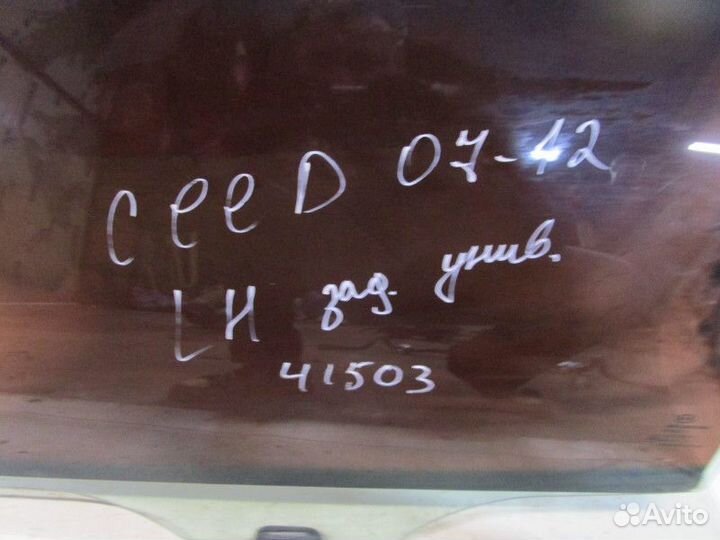 CeeD 07-12
LH зад. унив.
41503
Avito